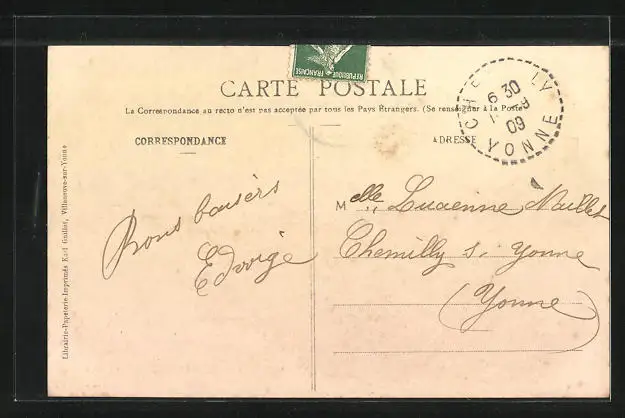 REPUBLIQUE FRANÇAISE
CARTE POSTALE
La Correspondance au recto n'est pas acceptée par tous les Pays Étrangers. (Se renseigner à la Poste
CORRESPONDANCE
ADRESSE
6 30
09
YONNE
Bons baisers
Edwige
Melle Lucienne Maillet
Chemilly s. Yonne
(Yonne)
Librairie-Papeterie-Imprimés Karl Guillot, Villeneuve-sur-Yonne